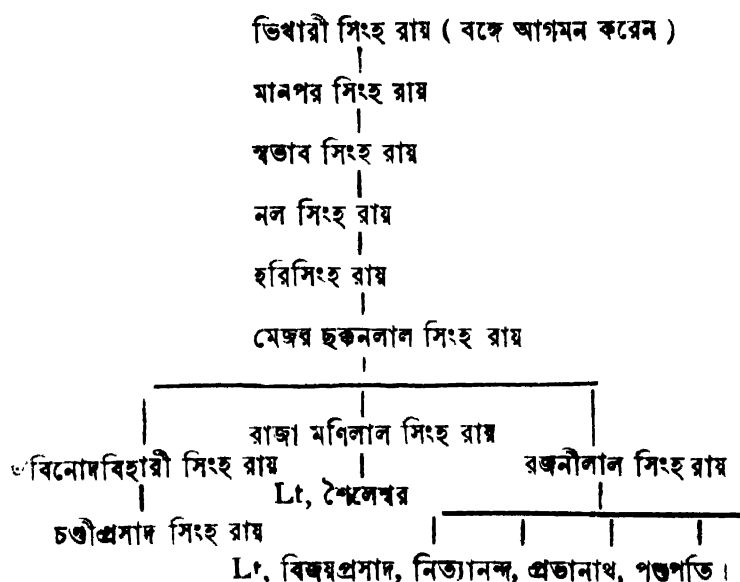 ভিখারী সিংহ রায় ( বঙ্গে আগমন করেন )
মানপর সিংহ রায়
স্বভাব সিংহ রায়
নল সিংহ রায়
হরিসিংহ রায়
মেজর ছক্কনলাল সিংহ রায়
রাজা মণিলাল সিংহ রায়
বিনোদবিহারী সিংহ রায়
রজনীলাল সিংহ রায়
Lt, শৈলেশ্বর
চণ্ডীপ্রসাদ সিংহ রায়
Lt, বিজয়প্রসাদ, নিত্যানন্দ, প্রভানাথ, পশুপতি।